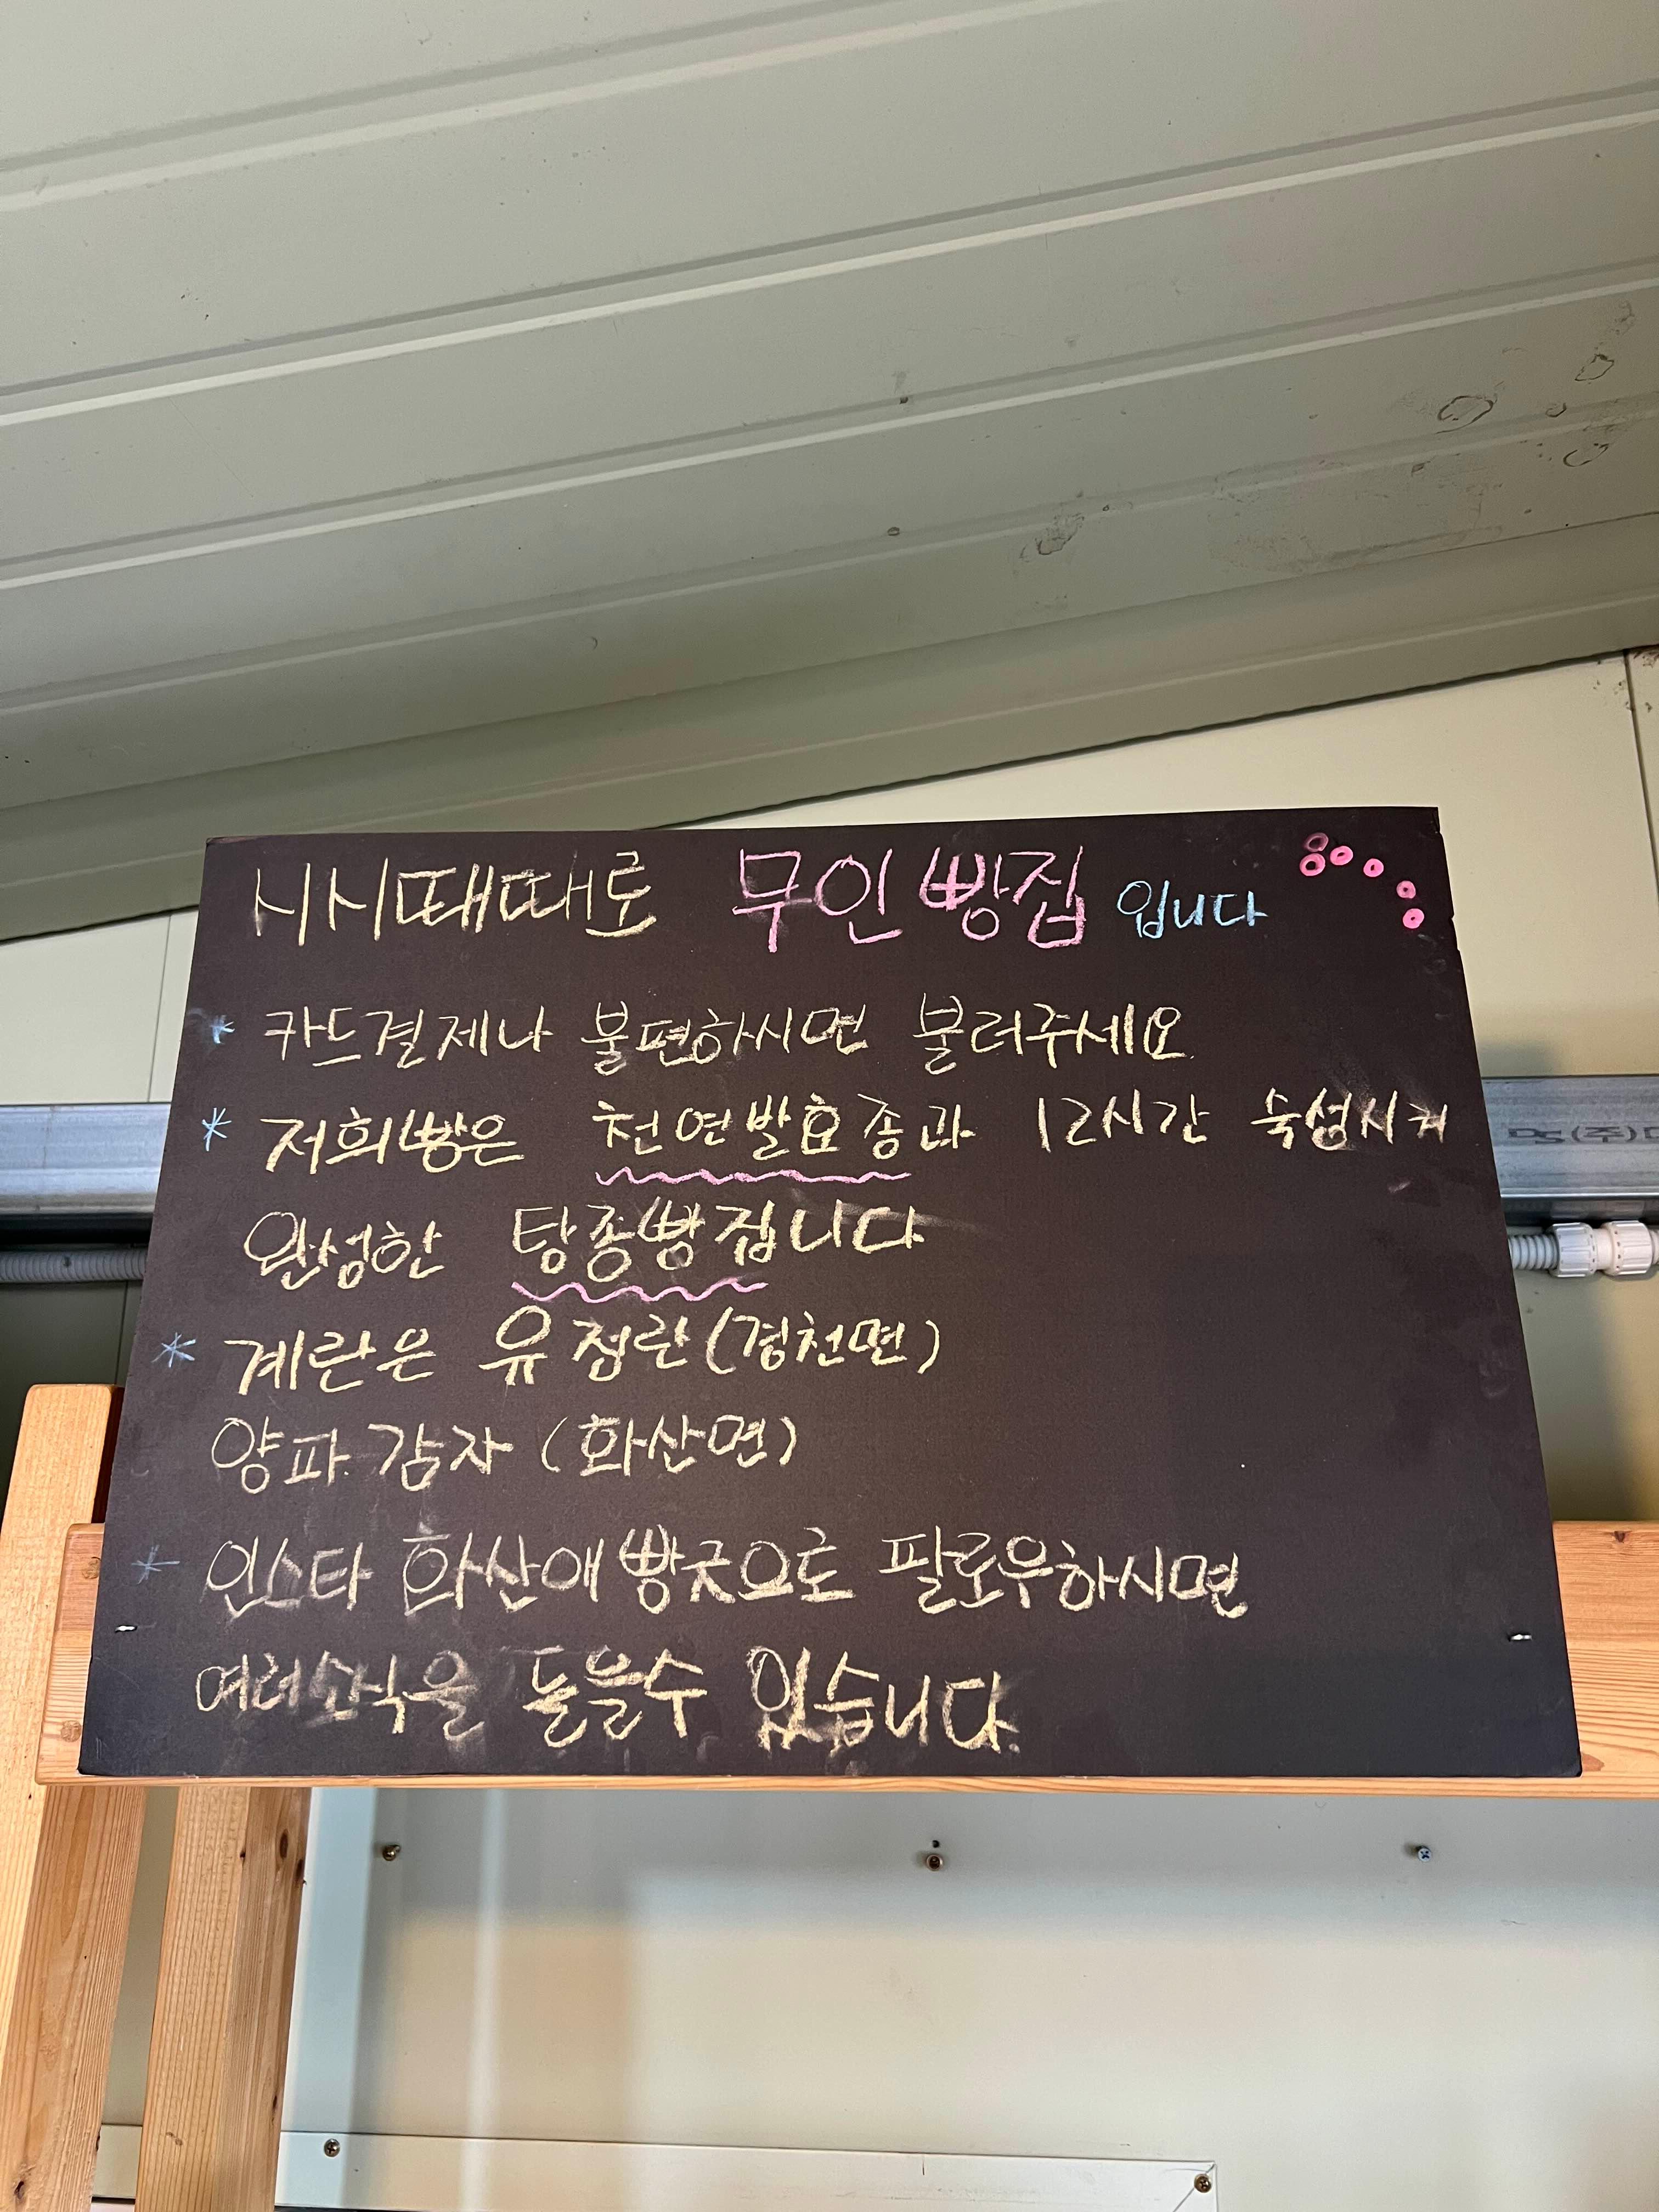 시시때때로 무인빵집 입니다
* 카드결제나 불편하시면 불러주세요
* 저희빵은 천연발효종과 12시간 숙성시켜
완성한 탕종빵집니다
* 계란은 유정란(경천면)
양파 감자 (화산면)
* 인스타 화산애빵굿으로 팔로우하시면
여러소식을 들을수 있습니다.